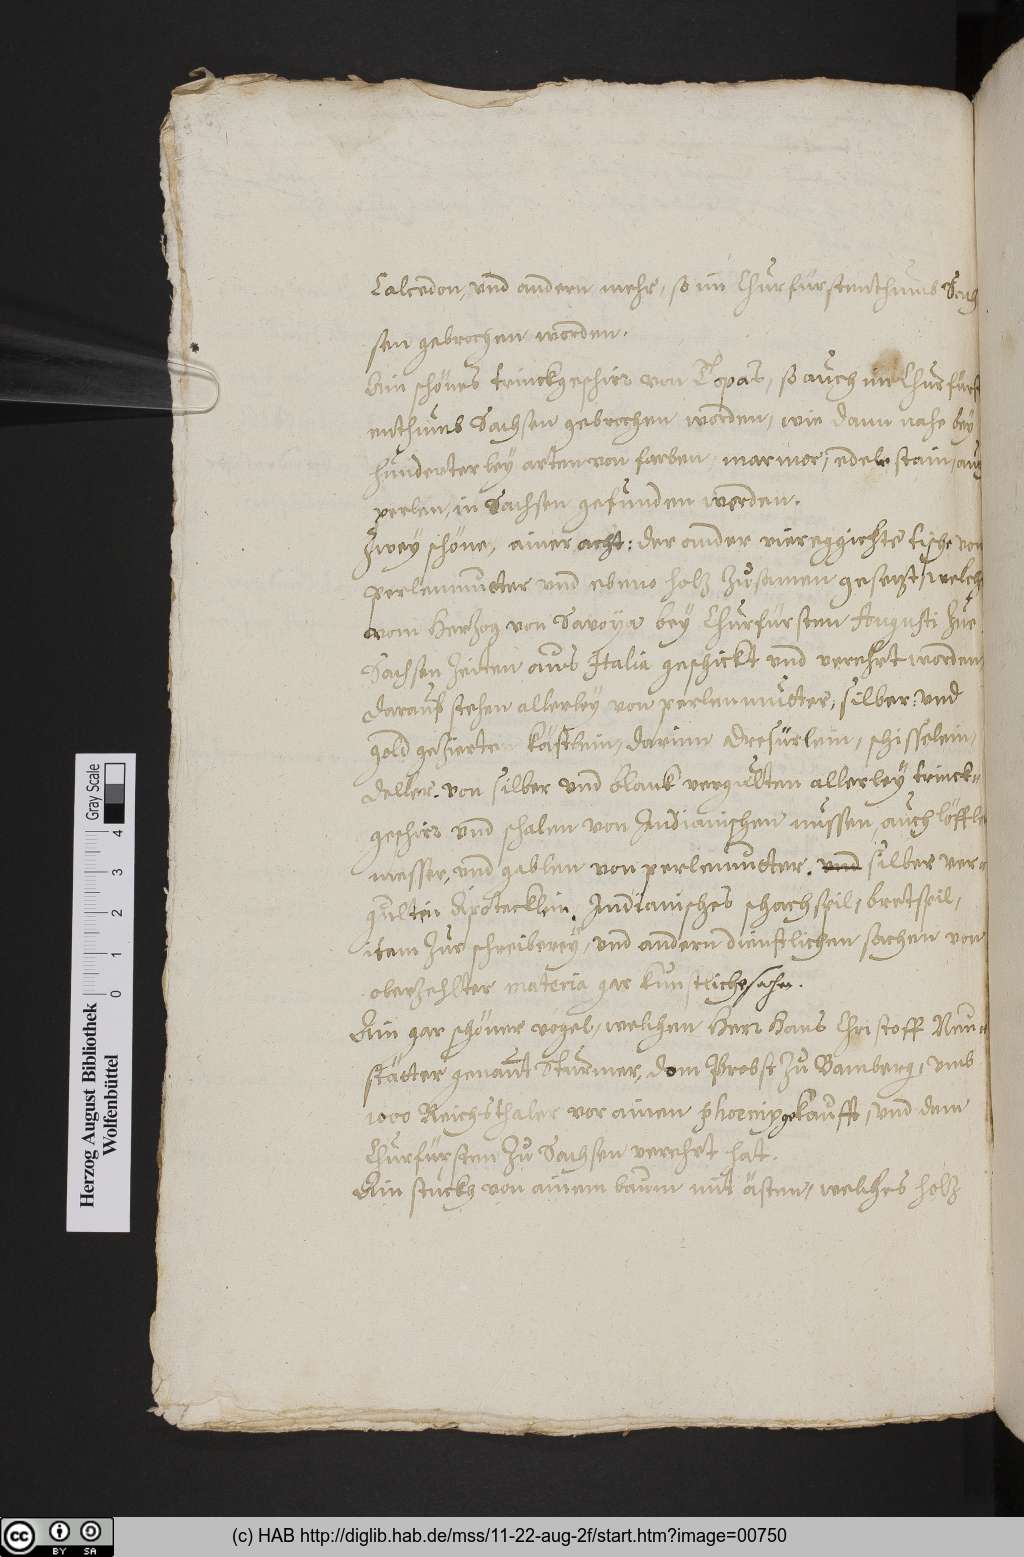 Calcedon, vnd andern mehr, so im Churfürstenthumb Sach
sen gebrochen worden.
Ein schönes trinckgeschirr von Topas, so auch im Churfürst
enthumb Sachsen gebrochen worden, wie dann nahe bey
hunderterley arten von farben, marmor, edele stain, auch
perlen, in Sachsen gefunden worden.
Zwey schöne, ainer acht: der ander viereggichte tische von
perlenmutter vnd ebeno holz zusamen gesetzt, welche
vom Herzog von Savoya bey Churfürsten Augusti zue
Sachsen zeiten aus Italia geschickt vnd verehrt worden,
darauf stehen allerley von perlenmutter, silber: vnd
gold gezierten kästlein, darinn schisselein,
deller, von silber vnd blank vergulten allerley trinck-
geschirr vnd schalen von Indianischen nussen, auch löffle
messer, vnd gablen von perlenmutter, vnd silber ver-
gulten Apotecklin, Indianisches schachspil, bretspil,
item zur schreiberey, vnd andern dienstlichen sachen von
oberzehlter materia gar kunstliche sachen.
Ein gar schöner vogel, welchen Herr Hans Christoff Neu-
stätter genant Sturmer, dom Probst zu Bamberg, vmb
1000 Reichsthaler vor ainen phoenix gekaufft, vnd dem
Churfürsten zu Sachsen verehrt hat.
Ein stuckh von ainem baum mit ästen, welches holz
Herzog August Bibliothek
Wolfenbüttel
Gray Scale
0 1 2 3 4
cc BY SA
(c) HAB http://diglib.hab.de/mss/11-22-aug-2f/start.htm?image=00750